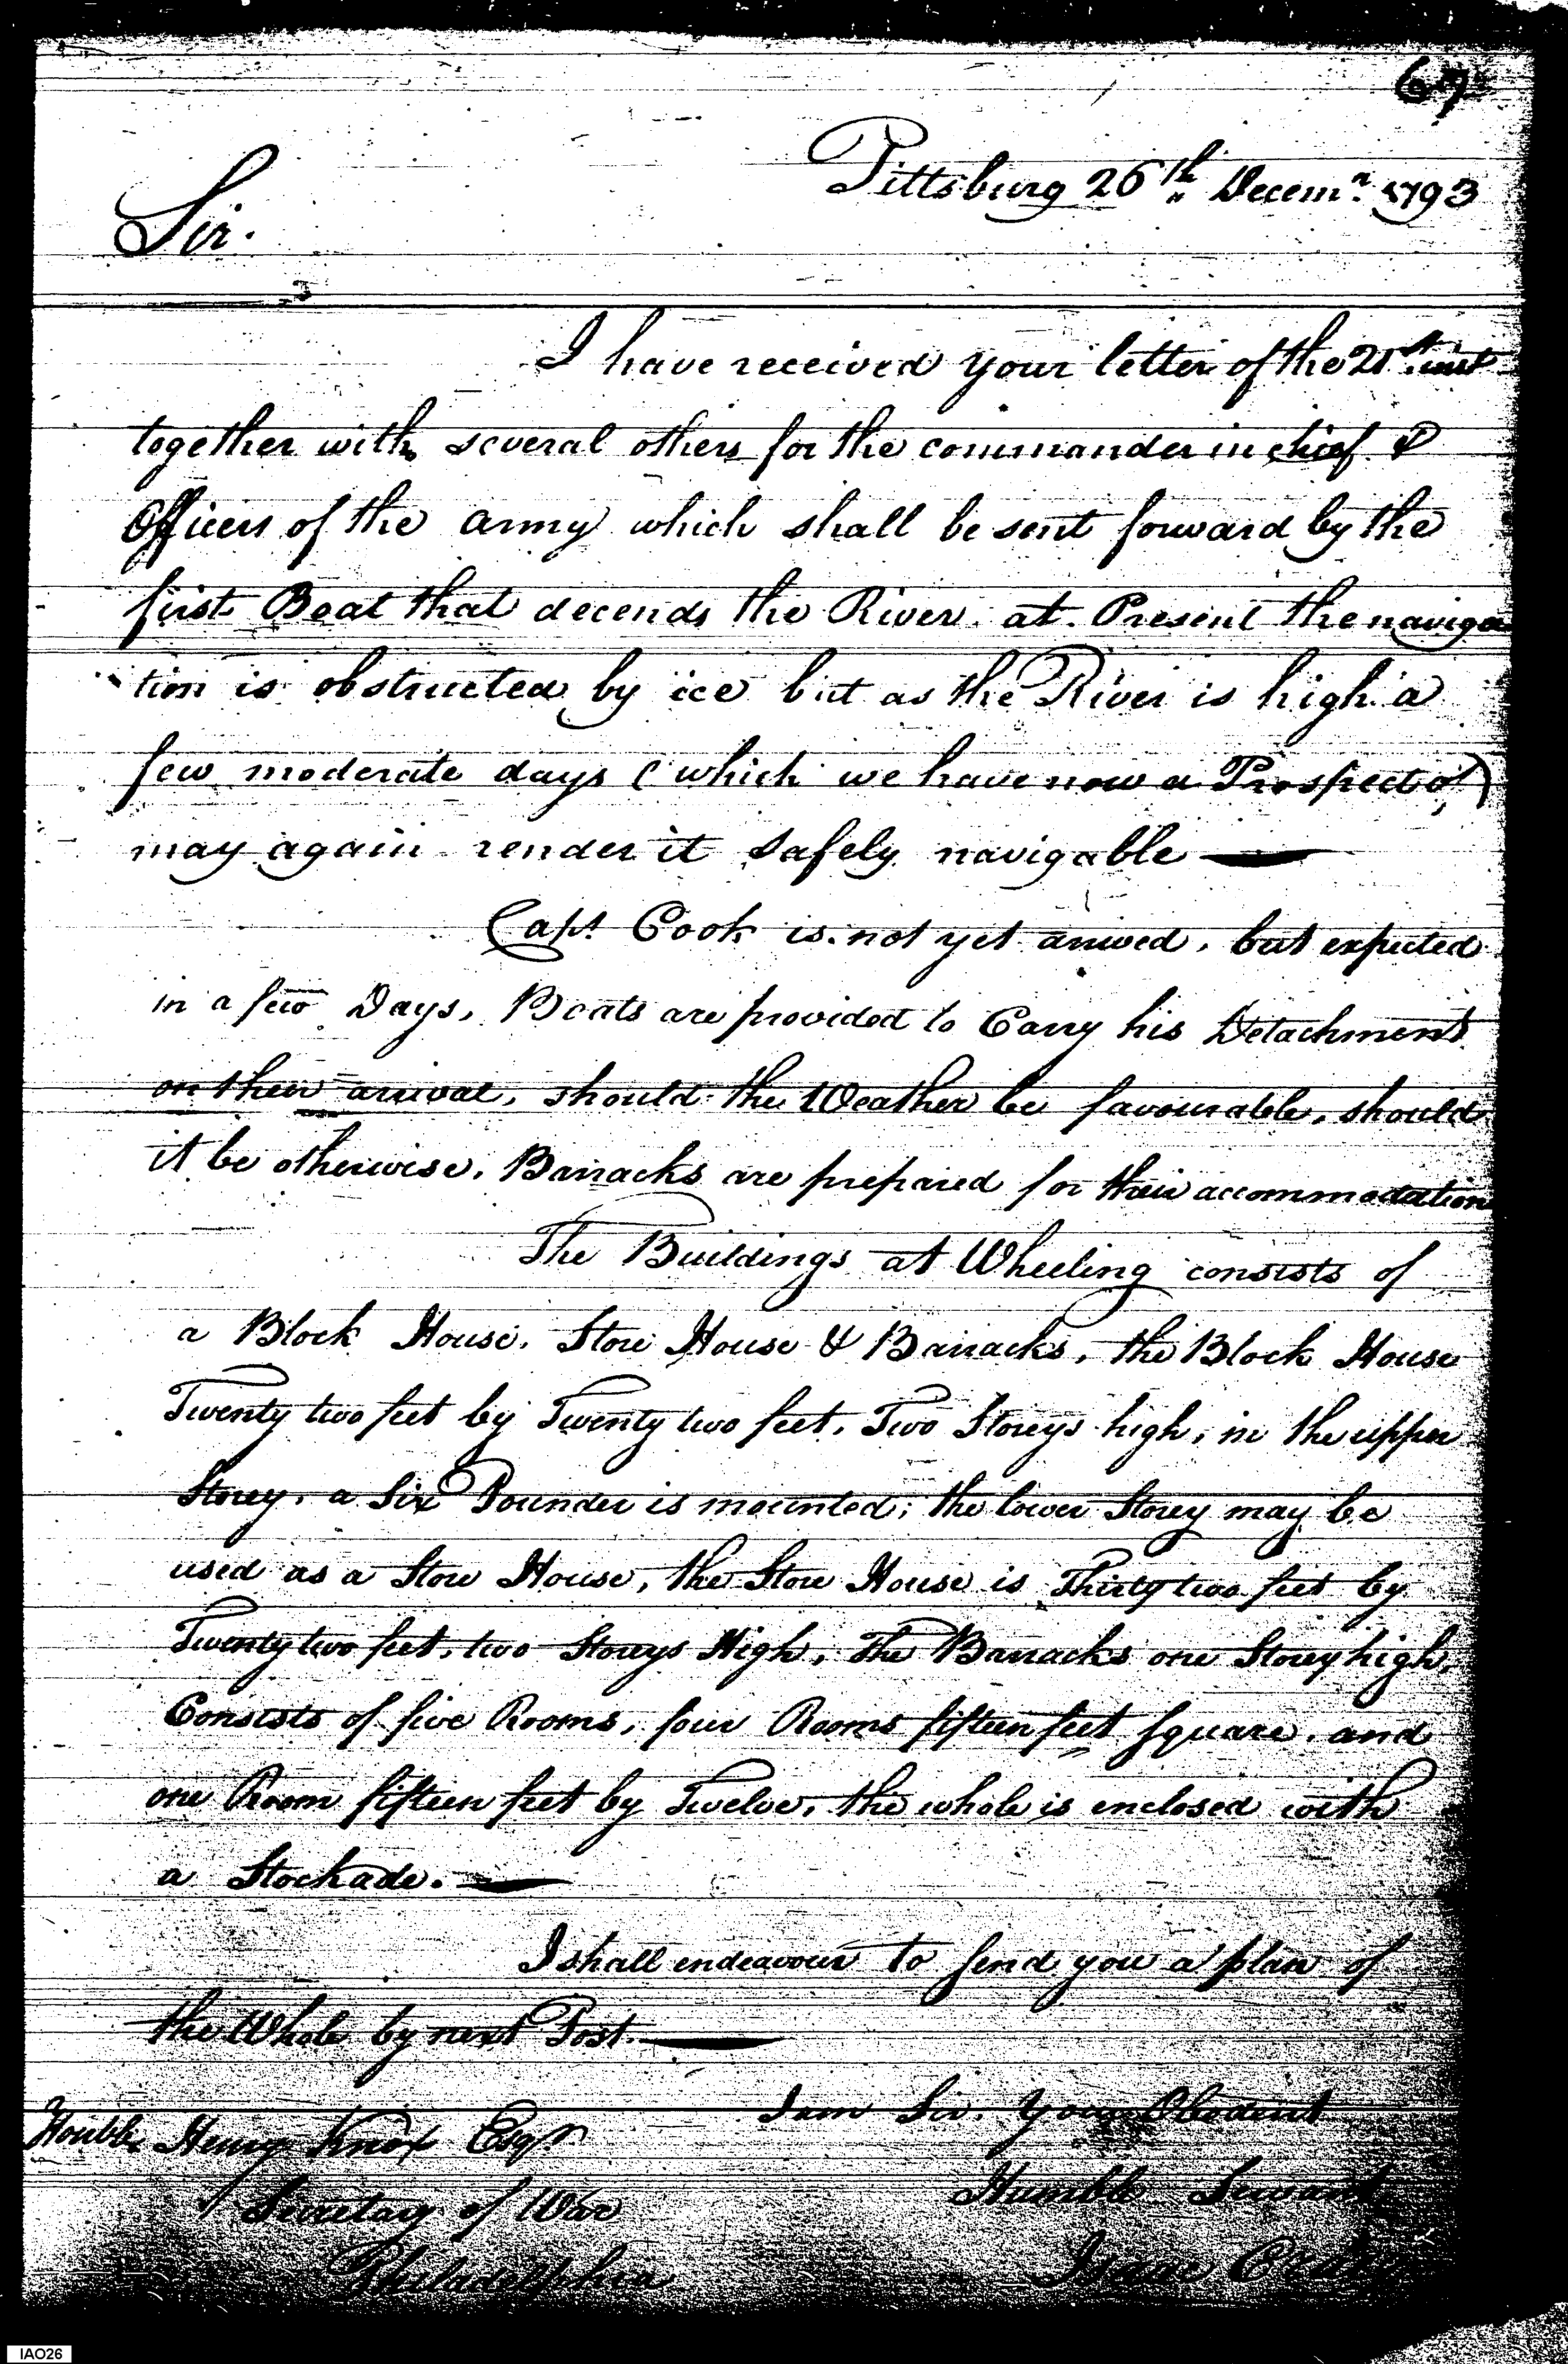 67
Pittsburg 26th Decemr. 1793
Sir.
I have received your letter of the 21st. inst
together with several others for the commander in chief &
Officers of the army which shall be sent forward by the
first Boat that decends the River. at Present the naviga
tion is obstructed by ice but as the River is high a
few moderate days (which we have now a Prospect of)
may again render it safely navigable —
Capt. Cook is not yet arrived, but expected
in a few Days, Boats are provided to Carry his Detachment
on their arrival, should the Weather be favourable, should
it be otherwise, Barracks are prepared for their accommodation
The Buildings at Wheeling consists of
a Block House, Store House & Barracks, the Block House
Twenty two feet by Twenty two feet, Two Storeys high, in the upper
Storey, a Six Pounder is mounted; the lower Storey may be
used as a Store House, the Store House is Thirty two feet by
Twenty two feet, two Storeys High, The Barracks one Storey high,
Consists of five Rooms, four Rooms fifteen feet square, and
one Room fifteen feet by Twelve, the whole is enclosed with
a Stockade. —
I shall endeavour to send you a plan of
the Whole by next Post. —
I am Sir, Your Obedient
Humble Servant
Isaac Craig
Honble. Henry Knox Esqr
Secretary of War
Philadelphia
IAO26